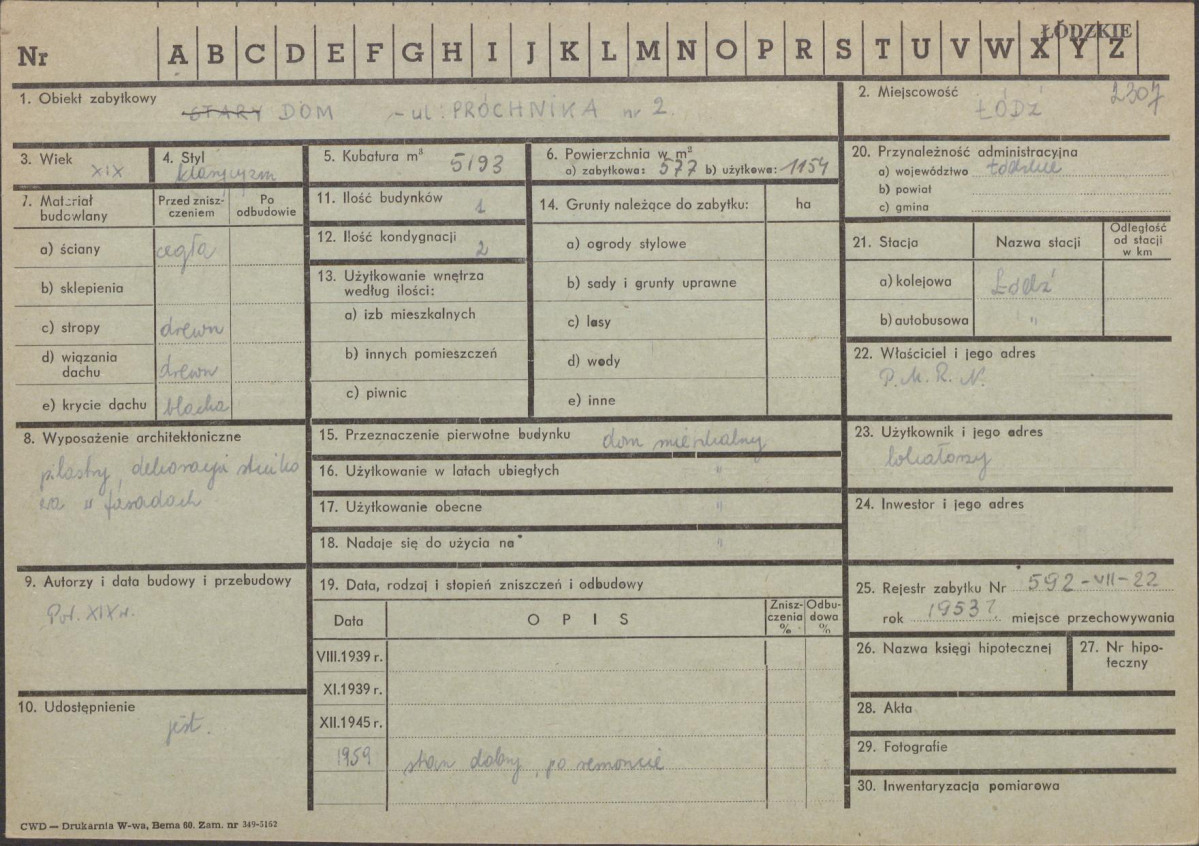 ŁÓDZKIE
Nr A B C D E F G H I J K L M N O P R S T U V W X Y Z
1. Obiekt zabytkowy
STARY DOM - ul: PRÓCHNIKA nr 2.
2. Miejscowość 2307
ŁÓDŹ
3. Wiek
XIX
4. Styl
klasycyzm
5. Kubatura m³ 5193
6. Powierzchnia w m²
a) zabytkowa: 577 b) użytkowa: 1154
20. Przynależność administracyjna
a) województwo Łódzkie
b) powiał
c) gmina
7. Materiał budowlany
Przed znisz-
czeniem
Po
odbudowie
a) ściany cegła
b) sklepienia
c) stropy drewn
d) wiązania
dachu drewn
e) krycie dachu blacha
11. Ilość budynków 1
12. Ilość kondygnacji 2
13. Użytkowanie wnętrza
według ilości:
a) izb mieszkalnych
b) innych pomieszczeń
c) piwnic
14. Grunty należące do zabytku: ha
a) ogrody stylowe
b) sady i grunty uprawne
c) lasy
d) wody
e) inne
21. Stacja Nazwa stacji
Odległość
od stacji
w km
a) kolejowa Łódź
b) autobusowa "
22. Właściciel i jego adres
P.M.R.N.
8. Wyposażenie architektoniczne
pilastry, dekoracja stiuko
wa w fasadach
15. Przeznaczenie pierwotne budynku dom mieszkalny
16. Użytkowanie w latach ubiegłych "
17. Użytkowanie obecne "
18. Nadaje się do użycia na "
23. Użytkownik i jego adres
lokatorzy
24. Inwestor i jego adres
9. Autorzy i data budowy i przebudowy
Poł. XIX w.
19. Data, rodzaj i stopień zniszczeń i odbudowy
Data OPIS
Znisz-
czenia
%
Odbu-
dowa
%
VIII.1939 r.
XI.1939 r.
XII.1945 r.
1959 stan dobry, po remoncie
25. Rejestr zabytku Nr 592-VII-22
rok 1953? miejsce przechowywania
26. Nazwa księgi hipotecznej
27. Nr hipo-
teczny
10. Udostępnienie
jest.
28. Akta
29. Fotografie
30. Inwentaryzacja pomiarowa
CWD — Drukarnia W-wa, Bema 60. Zam. nr 349-5162